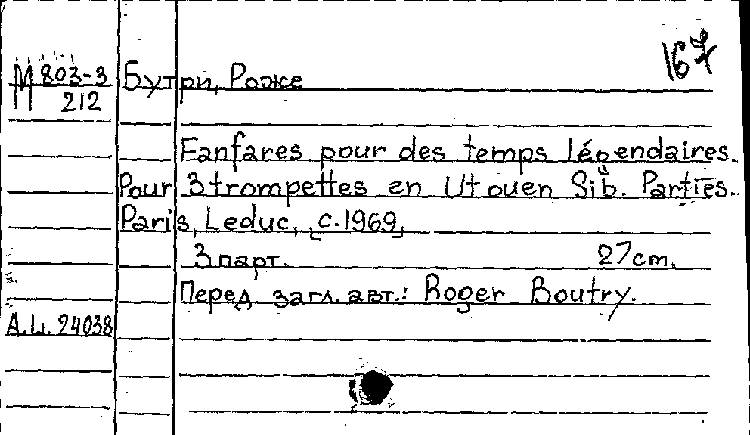 167
М 803-3 Бутри, Роже
212
Fanfares pour des temps légendaires.
Pour 3 trompettes en Ut ou en Sib. Parties.
Paris, Leduc, c.1969,
3 парт. 27 cm.
Перед загл. авт.: Roger Boutry.
А.Ц. 24038